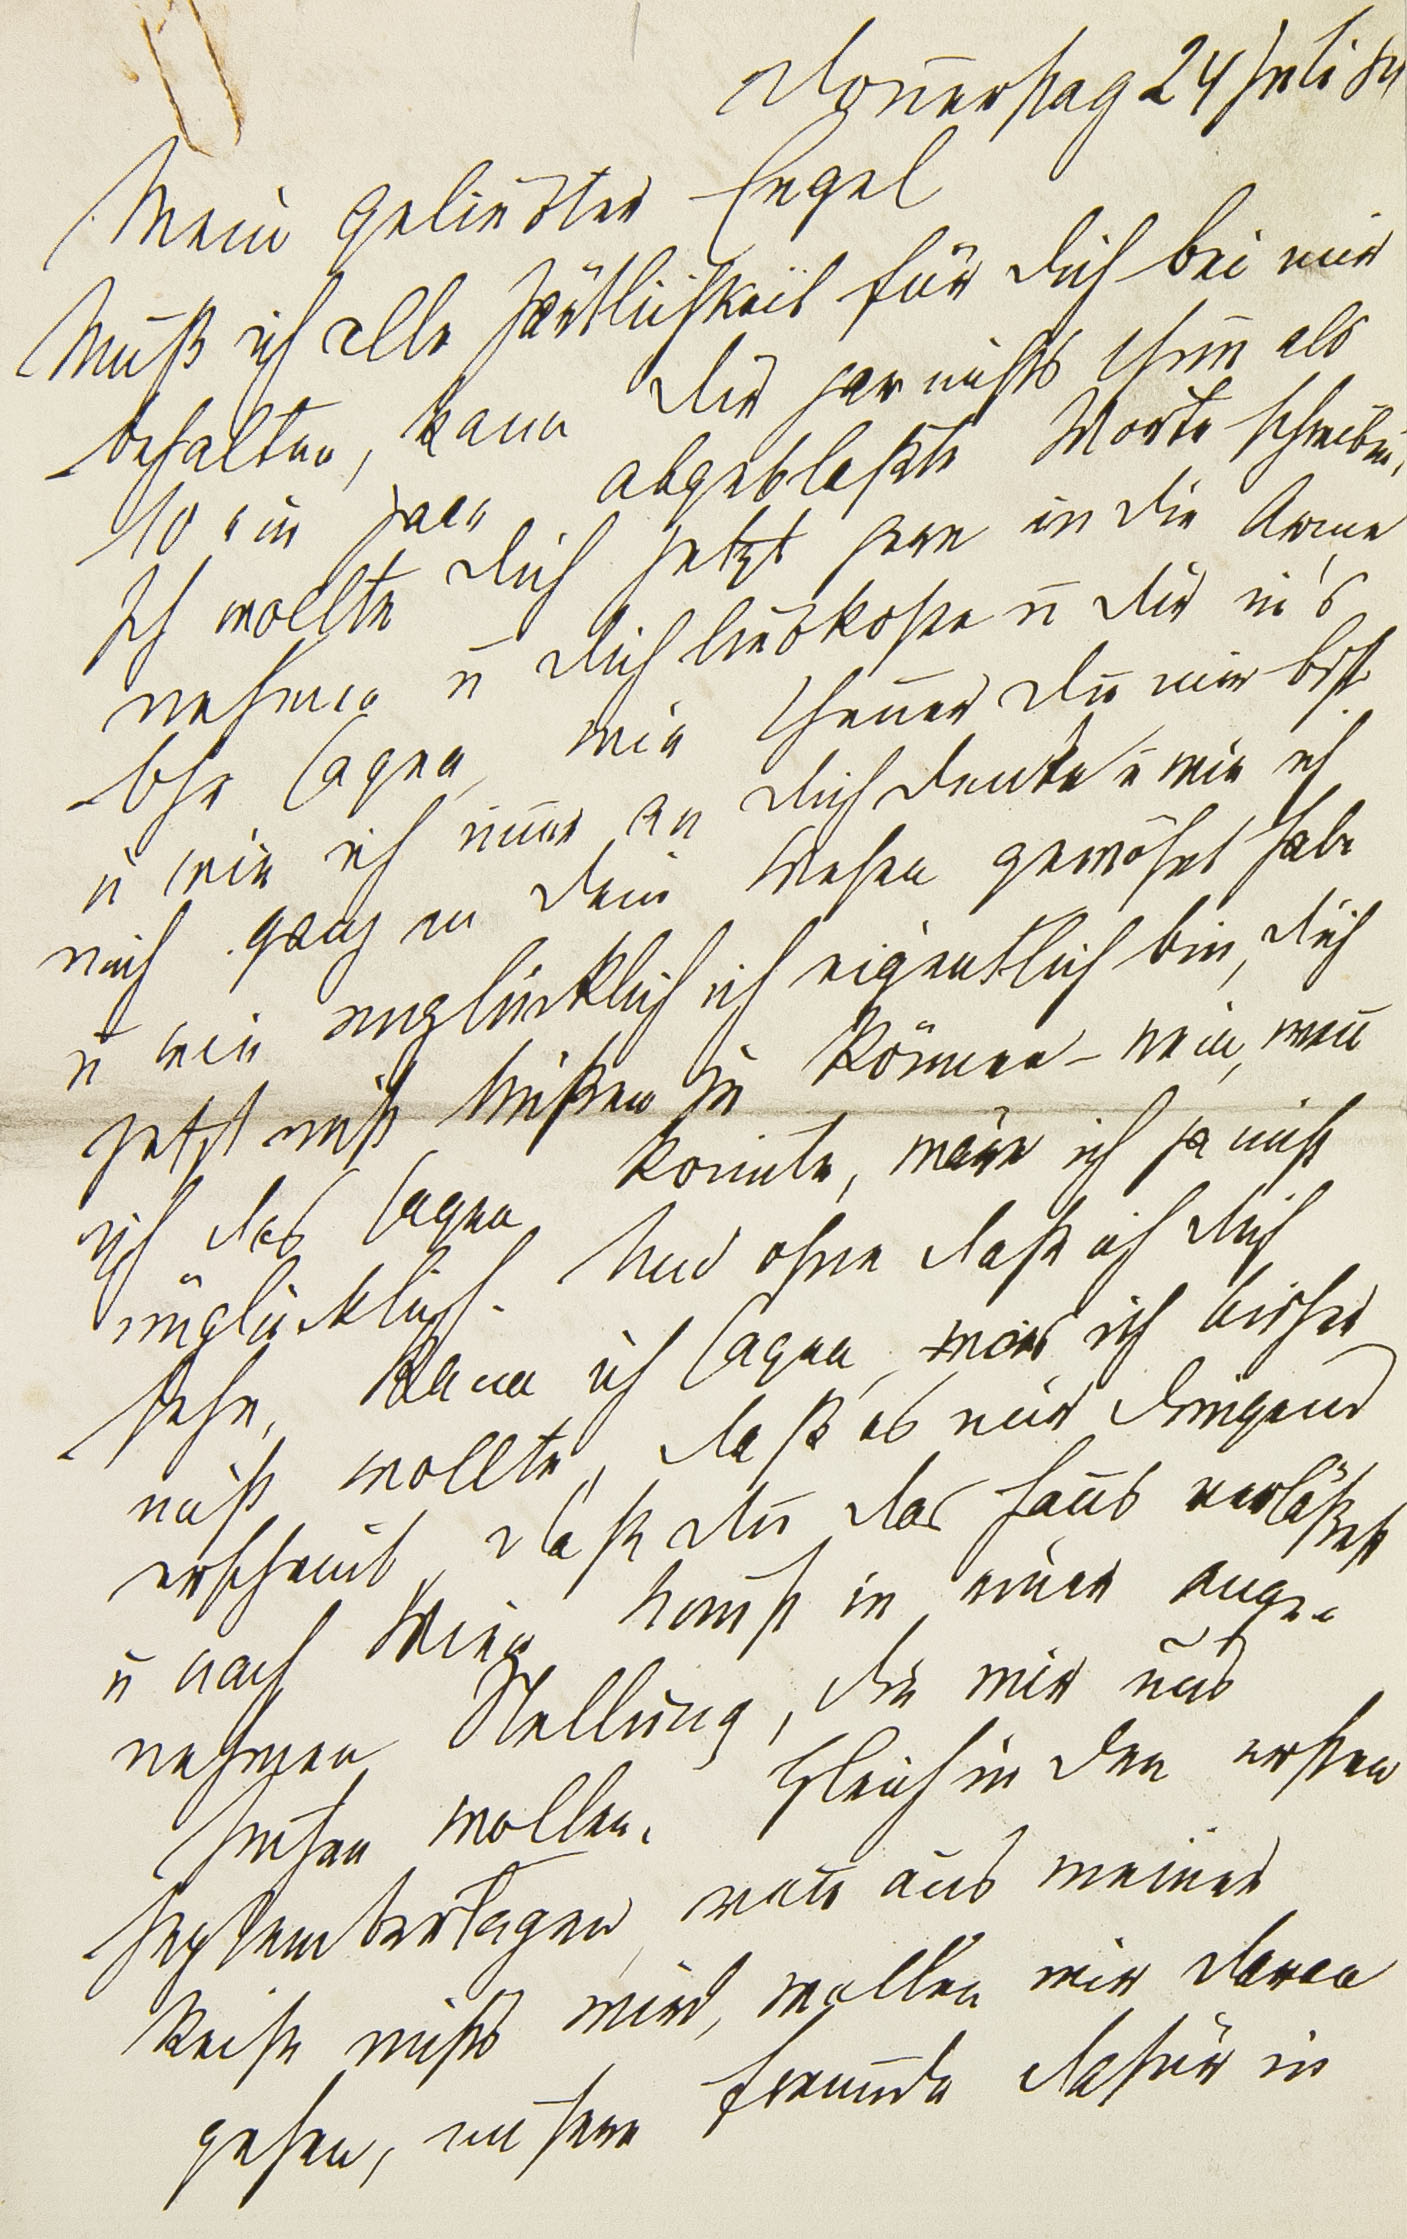 Donnerstag 24 Juli 84
Mein geliebter Engel
Muß ich alle Zärtlichkeit für Dich bei mir
behalten, kann Dir gar nichts thun als
so ein paar abgeblaßte Worte schreiben.
Ich wollte Dich jetzt gern in die Arme
nehmen u Dich liebkosen u Dir in's
Ohr sagen, wie theuer Du mir bist
u wie ich immer an Dich denke u wie ich
mich ganz in Dein Wesen gewöhnt habe
u wie unglücklich ich eigentlich bin, Dich
jetzt nicht küßen zu können – nein, wenn
ich das sagen könnte, wäre ich ja nicht
unglücklich. Und ohne daß ich Dich
sehe, kann ich sagen, was ich bisher
nicht wollte, daß es mir dringend
erscheint, daß Du das Haus verläßest
u nach Wien kommst in einer ange-
nehmen Stellung, die wir uns
suchen wollen. Gleich in den ersten
Septembertagen, wenn aus meiner
Reise nichts wird, wollen wir daran
gehen, unsere Freunde dafür in